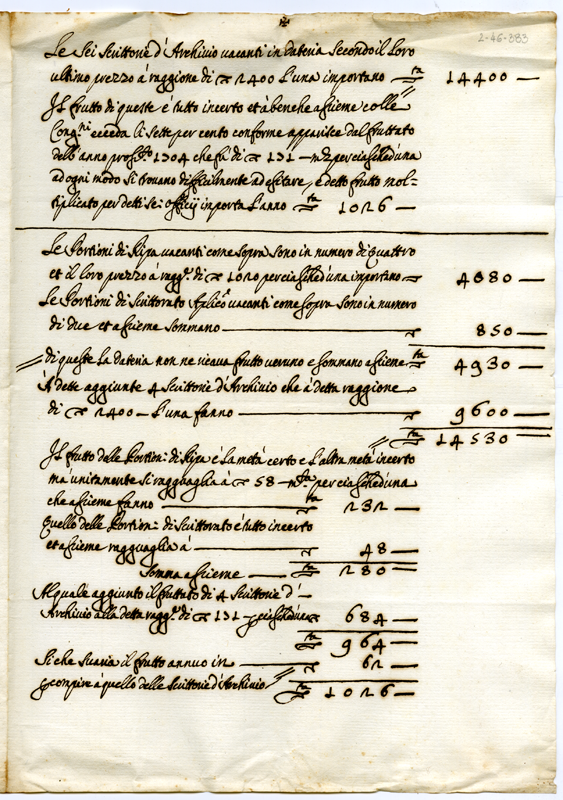 2-46-383
Le Sei Scrittorie d'Archivio vacanti in dateria Secondo il Loro
ultimo prezzo à raggione di 2400 L'una importano 14400
Il frutto di queste è tutto incerto et à benche assieme colle
Cong.ni ecceda li Sette per cento conforme apparisce dal fruttato
dell'anno 1704 che fù di 171 per ciascheduna
ad ogni modo Si trovano difficilmente ad esitare, e detto frutto mol-
tiplicato per detti sei officij importa L'anno 1026
Le Portioni di Ripa vacanti come sopra sono in numero di quattro
et il loro prezzo à ragg.e di 1020 per ciascheduna importano 4080
Le Portioni di Scrittorato vacanti come sopra sono in numero
di due et assieme sommano 850
di queste La dateria non ne ricava frutto veruno e sommano assieme 4930
A dette aggiunte 4 Scrittorie d'Archivio che à detta raggione
di 2400 L'una fanno 9600
14530
Il frutto delle Portion: di Ripa è La metà certo e L'altra metà incerto
mà unitamente si ragguaglia à 58 per ciascheduna
che assieme fanno 232
Quello delle Portion: di Scrittorato è tutto incerto
et assieme ragguaglia à 48
Somma assieme 280
Al quale aggiunto il fruttato di 4 Scrittorie d'
Archivio alla detta ragg.e di 171 per ciascheduna 684
964
Si che svaria il frutto annuo in 62
compire à quello delle Scrittorie d'Archivio 1026